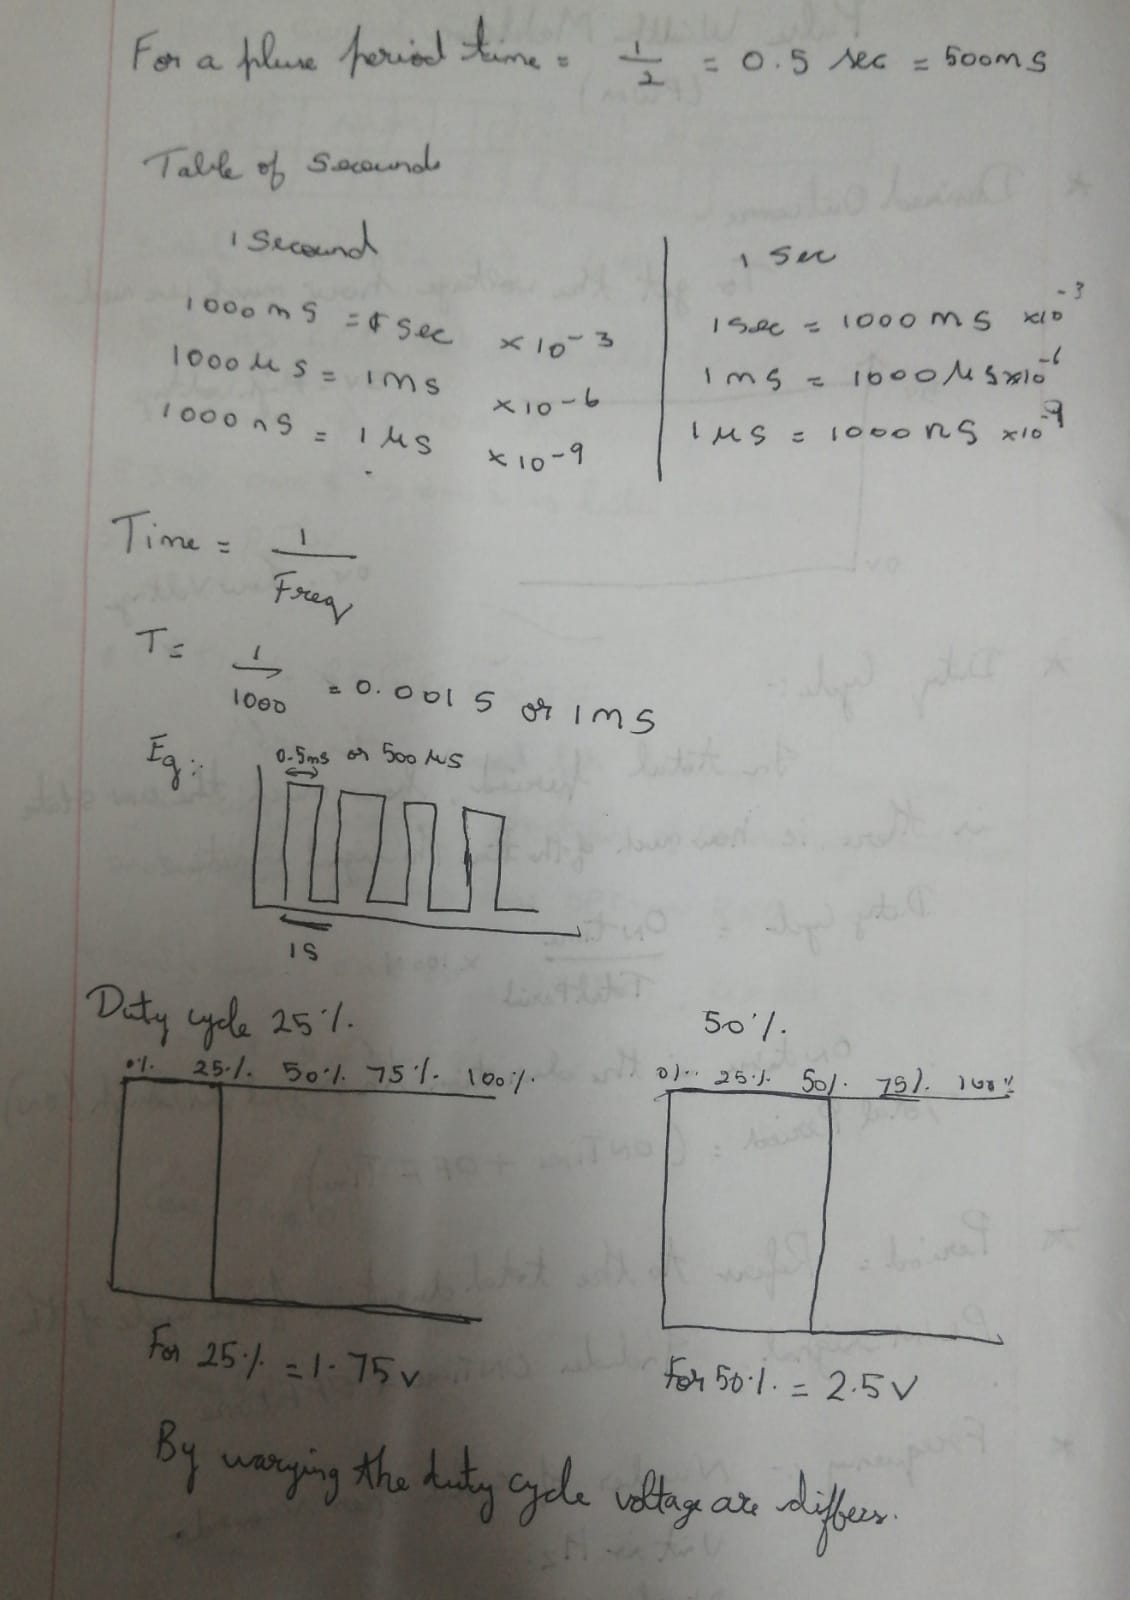 For a pluse period time = 1/2 = 0.5 sec = 500ms
Table of Secounds
1 Secound
1000 ms = 1 sec ×10-3
1000 μs = 1ms ×10-6
1000 ns = 1 μs ×10-9
1 Sec
1 sec = 1000 ms ×10⁻³
1 ms = 1000 μs ×10⁻⁶
1 μs = 1000 ns ×10⁻⁹
Time = 1/Freq
T = 1/1000 = 0.001 S or 1ms
Eg:-
0.5ms or 500 μs
1S
Duty cycle 25%.
0%. 25%. 50%. 75%. 100%.
For 25%. = 1.75 v
50%.
0%. 25%. 50%. 75%. 100%
For 50%. = 2.5 V
By warying the duty cycle voltage are differs.